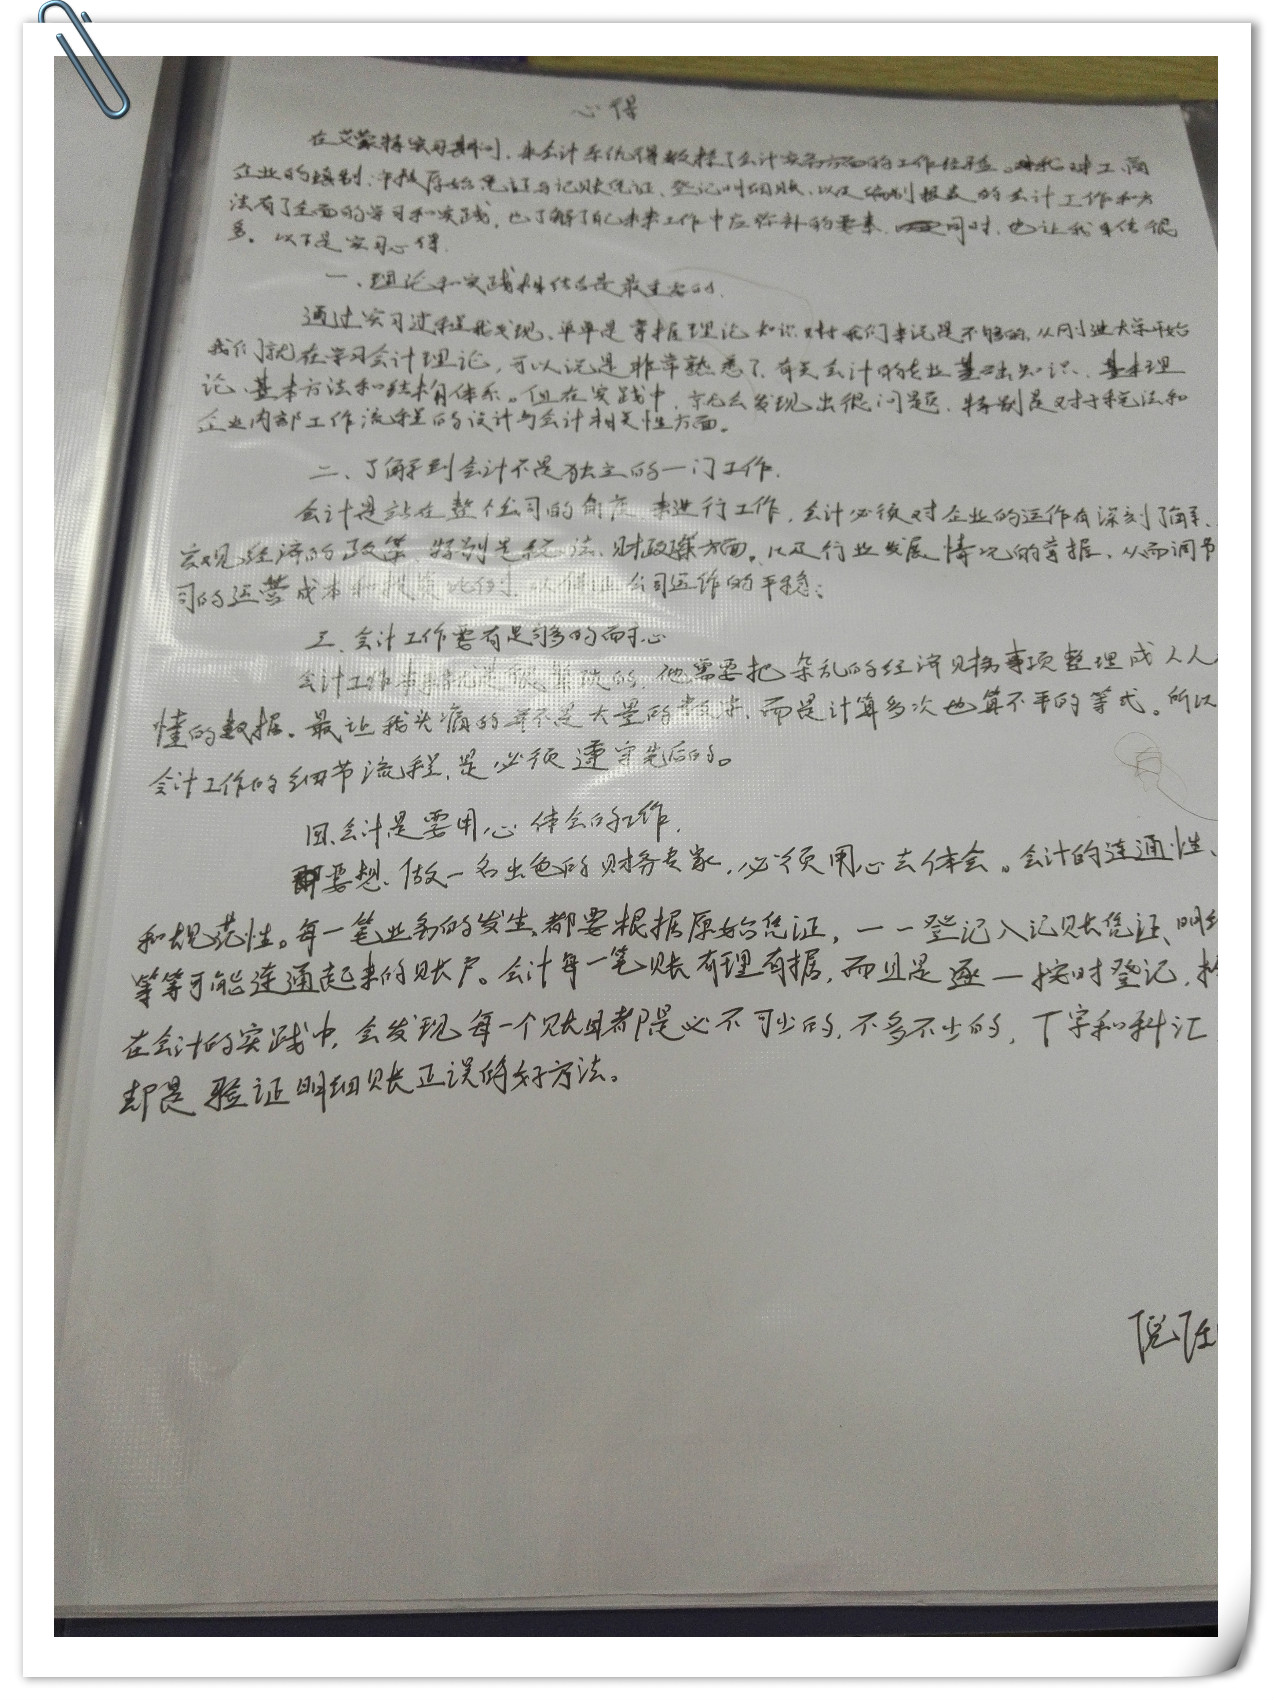 心得
在艾蒙特实习期间,本会计系统得教授了会计实务方面的工作经验。对工、商
企业的填制、审核原始凭证与记账凭证、登记明细账、以及编制报表的会计工作和方
法有了全面的学习和实践,也了解了自己未来工作中应弥补的要素,同时,也让我自信很
多。以下是实习心得
一、理论和实践相结合是最重要的
通过实习过程我发现,单单是掌握理论知识对于我们来说是不够的,从刚进大学开始
我们就在学习会计理论,可以说是非常熟悉了有关会计的专业基础知识、基本理
论、基本方法和结构体系。但在实践中,就会发现出很问题,特别是对于税法和
企业内部工作流程的设计与会计相关性方面。
二、了解到会计不是独立的一门工作.
会计是站在整个公司的角度来进行工作,会计必须对企业的运作有深刻了解、
宏观经济的政策,特别是税法、财政政策方面。以及行业发展情况的掌握,从而调节
司的运营成本和投资比例,以保证公司运作的平稳;
三、会计工作要有足够多的耐心
会计工作本来就是很繁琐的,他需要把杂乱的经济财务事项整理成人人
懂的数据。最让我头痛的并不是大量的数字,而是计算多次也算不平的等式。所以
会计工作的细节流程,是必须遵守先后的。
四、会计是要用心体会的工作.
要想做一名出色的财务专家,必须用心去体会。会计的连通性、
和规范性。每一笔业务的发生,都要根据原始凭证,一一登记入记账凭证、明细
等等可能连通起来的账户。会计每一笔账有理有据,而且是逐一按时登记,
在会计的实践中,会发现每一个账目都是必不可少的,不多不少的,丁字和科汇
却是验证明细账正误的好方法。
倪